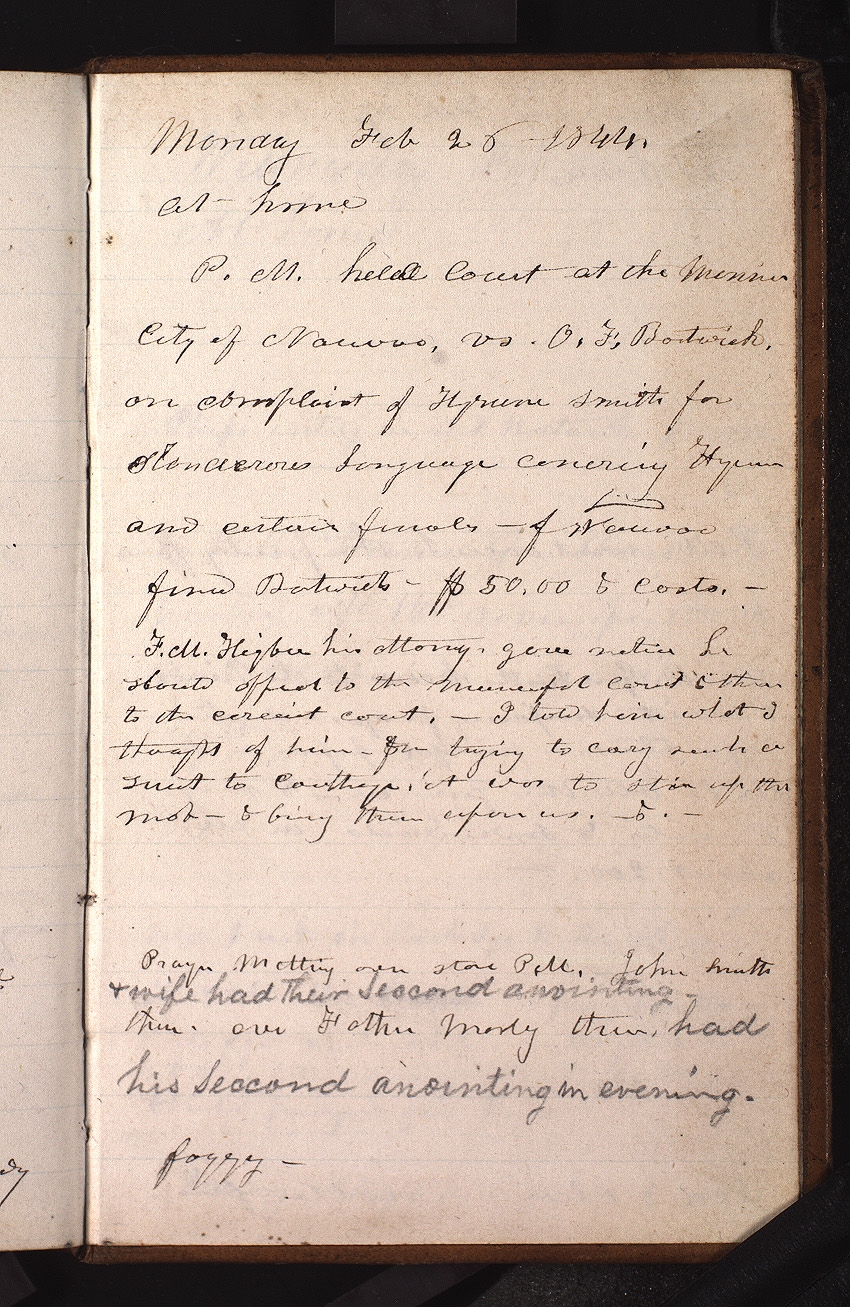 Monday Feb 26 1844.
at home
P. M. held Court at the Mansion
City of Nauvoo, vs. O. F. Botwick.
on complaint of Hyrum Smith for
slanderous language concering Hyrum
and certain females — of Nauvoo
fined Botwick — $50.00 & costs. —
F. M. Higbee his attorny. gave notice he
should appeal to the municipal court & then
to the circuit court. — I told him what I
thought of him — for trying to cary such a
suit to Carthage. it was to stir up the
mob — & bring them upon us. — &. —
Prayer Metting over store P.M. John Smith
& wife had their Seccond anointing —
there. and Father Morly there. had
his Seccond anointing in evening.
foggy —
dy